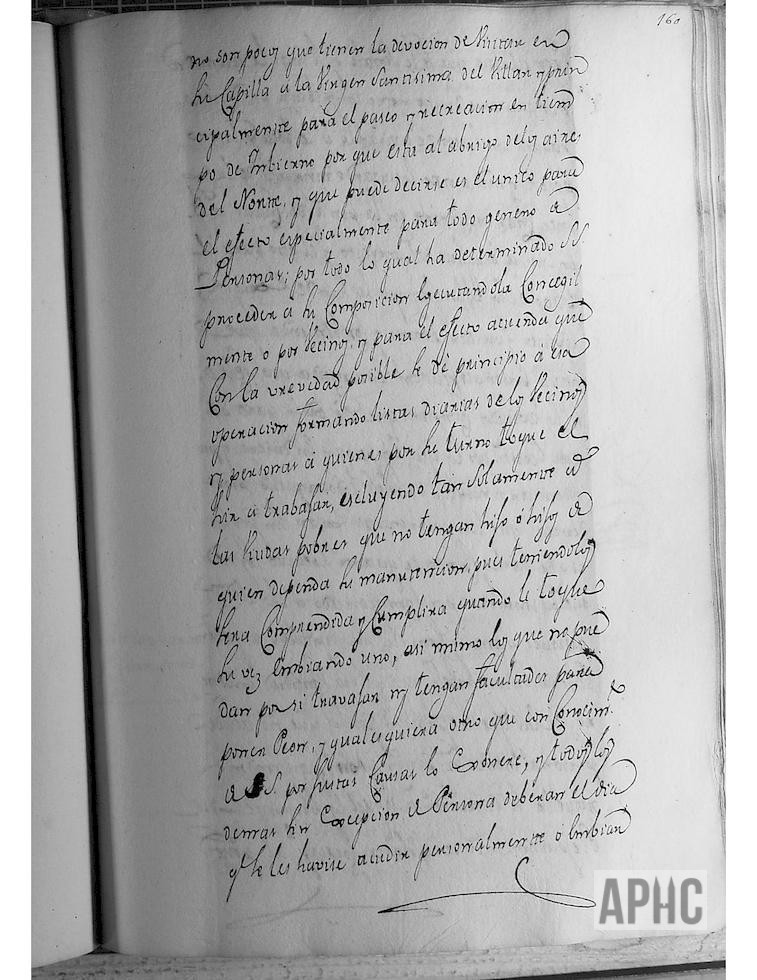 160
no son pocos que tienen la devocion de Visitar en
su Capilla a la Virgen Santisima del Pilar y prin
cipalmente para el paseo y recreacion en tiem
po de Imbierno por que esta al abrigo delos aires
del Norte, y que puede decirse es el unico para
el efecto especialmente para todo genero de
Personas; por todo lo qual ha determinado S.S.
proceder a su Composicion egecutandola Concegil
mente o por Vecinos, y para el efecto acuerda que
Con la vrevedad posible se dé principio á esa
operacion formando listas diarias delos Vecinos
y personas á quienes por su turno toque el
hir á trabajar, escluyendo tan solamente á
las Viudas pobres que no tengan hijo ó hijos de
quien dependa su manutencion, pues teniendolos
sera Comprendida y Cumplira quando le toque
su vez embiando uno, asi mimo los que no pue
dan por si travajar ny tengan facultades para
poner Peon, y qualesquiera otro que con Conocim.to
de S.S. por justas Causas lo Exonere, y todos los
demas sin Excepcion de Persona deberan el dia
q.e se les havise acudir personalmente ó embian
APHC